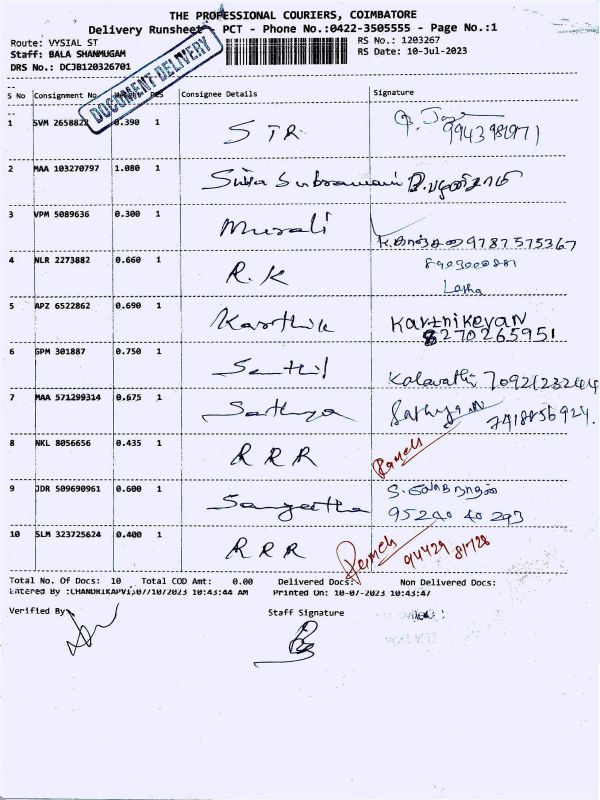 THE PROFESSIONAL COURIERS, COIMBATORE
Delivery Runsheet - PCT - Phone No.:0422-3505555 - Page No.:1
Route: VYSIAL ST RS No.: 1203267
Staff: BALA SHANMUGAM RS Date: 10-Jul-2023
DRS No.: DCJB120326701
DOCUMENT DELIVERY
S No Consignment No Weight PCS Consignee Details Signature
1 SVM 2658822 0.390 1 STR
2 MAA 103270797 1.080 1 Siva Subramani
3 VPM 5089636 0.300 1 Murali 9787575367
4 NLR 2273882 0.660 1 R.K
Latha
5 APZ 6522862 0.690 1 Karthik Karthikeyan
8270265951
6 GPM 301887 0.750 1 Senthil Kalavathi
7 MAA 571299314 0.675 1 Sathya
8 NKL 8056656 0.435 1 RRR Ramesh
9 JDR 509690961 0.600 1 Sangeetha
95240 40 293
10 SLM 323725624 0.400 1 RRR Ramesh
Total No. Of Docs: 10 Total COD Amt: 0.00 Delivered Docs: Non Delivered Docs:
Entered By :CHANDRIKAPVI,07/10/2023 10:43:44 AM Printed On: 10-07-2023 10:43:47
Verified By Staff Signature